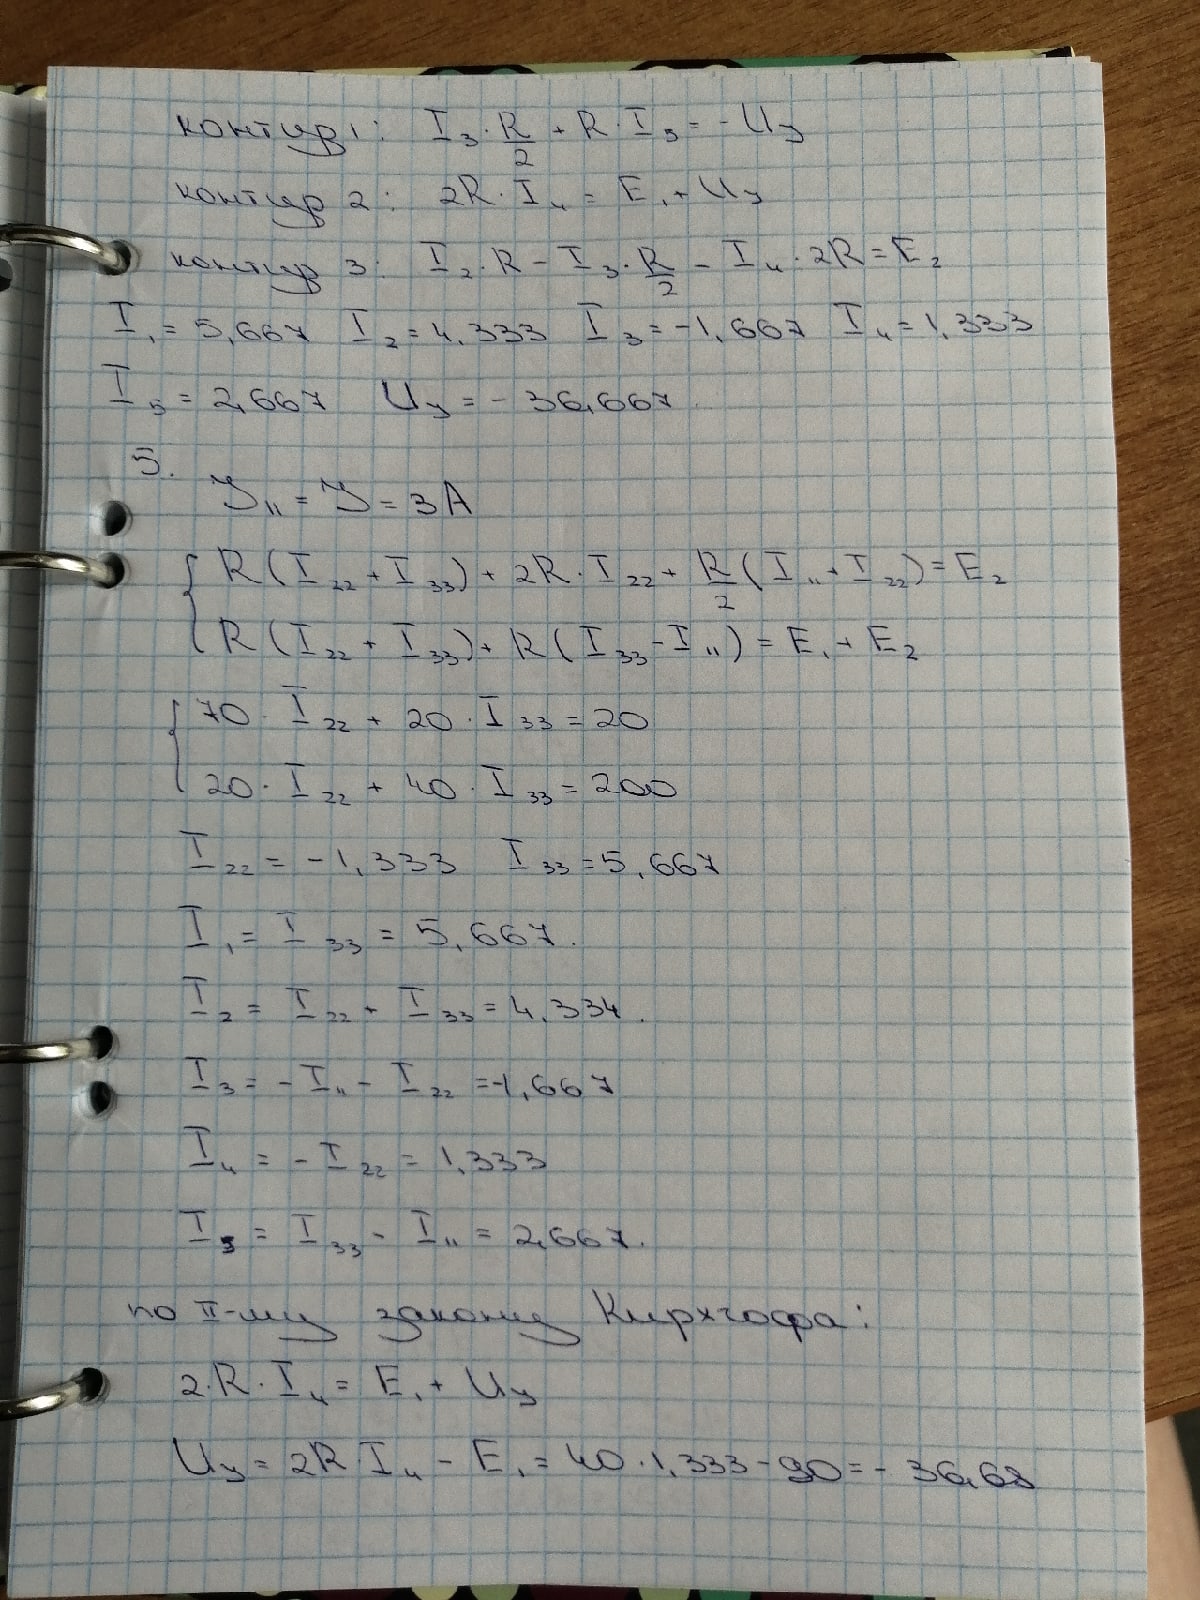 контур 1: I₃·R/2 + R·I₅ = -Uy
контур 2: 2R·I₄ = E₁ + Uy
контур 3: I₂·R - I₃·R/2 - I₄·2R = E₂
I₁ = 5,667 I₂ = 4,333 I₃ = -1,667 I₄ = 1,333
I₅ = 2,667 Uy = - 36,667
5.
J₁₁ = J = 3A
R(I₂₂ + I₃₃) + 2R·I₂₂ + R/2 (I₁₁ + I₂₂) = E₂
R(I₂₂ + I₃₃) + R(I₃₃ - I₁₁) = E₁ + E₂
70·I₂₂ + 20·I₃₃ = 20
20·I₂₂ + 40·I₃₃ = 200
I₂₂ = -1,333 I₃₃ = 5,667
I₁ = I₃₃ = 5,667.
I₂ = I₂₂ + I₃₃ = 4,334.
I₃ = - I₁₁ - I₂₂ = -1,667
I₄ = - I₂₂ = 1,333
I₅ = I₃₃ - I₁₁ = 2,667.
по II-му закону Кирхгофа:
2·R·I₄ = E₁ + Uy
Uy = 2R·I₄ - E₁ = 40·1,333 - 90 = - 36,68